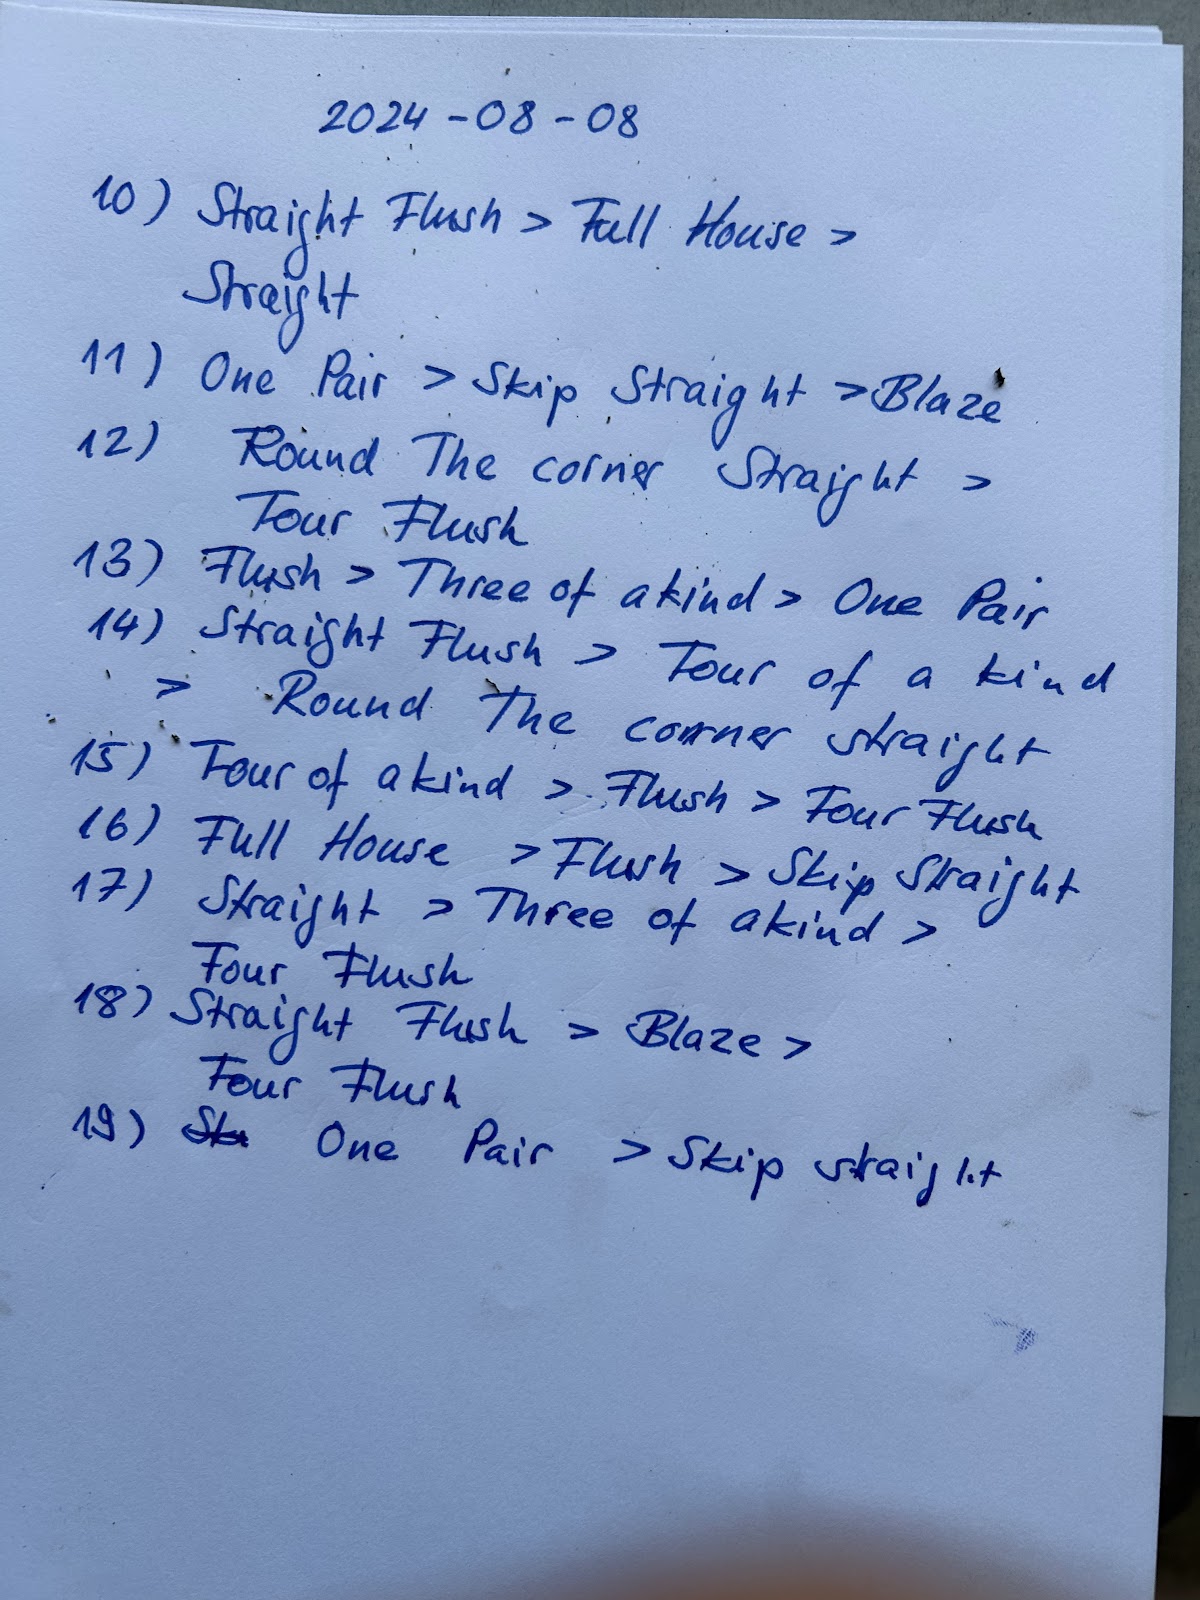 2024-08-08
10) Straight Flush > Full House >
Straight
11) One Pair > Skip Straight > Blaze
12) Round The corner Straight >
Four Flush
13) Flush > Three of a kind > One Pair
14) Straight Flush > Four of a kind
> Round The corner straight
15) Four of a kind > Flush > Four Flush
16) Full House > Flush > Skip Straight
17) Straight > Three of a kind >
Four Flush
18) Straight Flush > Blaze >
Four Flush
19) One Pair > Skip straight